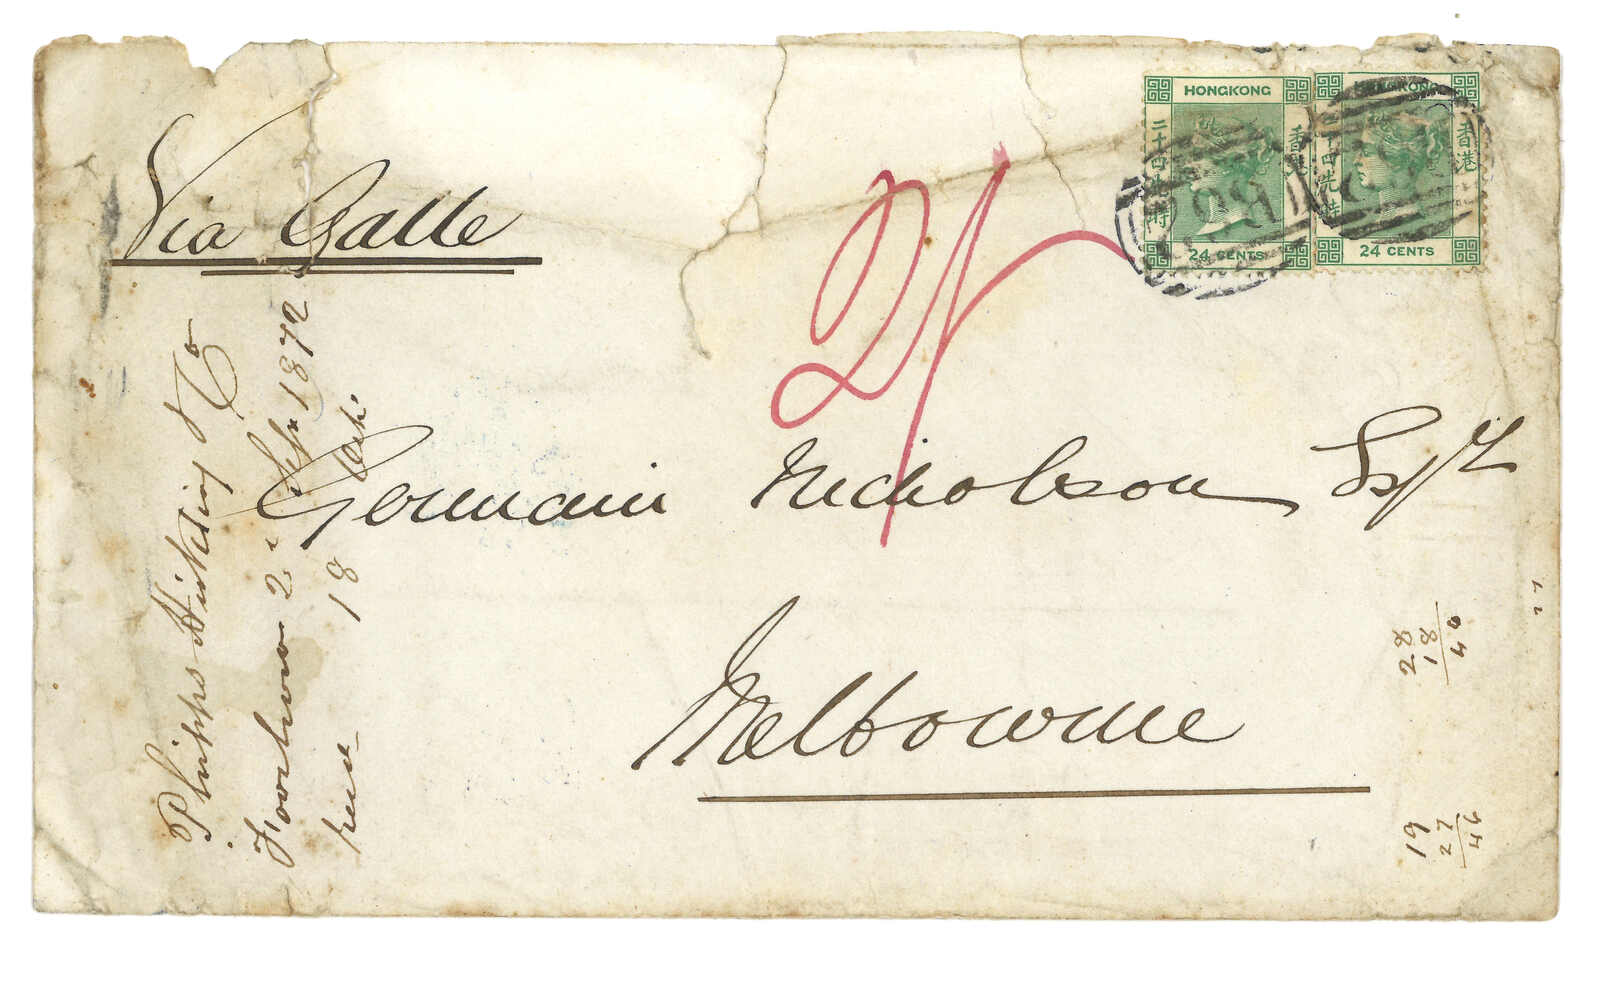 Via Galle
2/
HONGKONG
香港
二十四先時
24 CENTS
HONGKONG
香港
二十四先時
24 CENTS
B62
Germain Nicholson Esqr
Melbourne
Phipps Hickling & Co
Foochow 2 Sep 1872
18 Oct.
28
18
46
19
27
46
27